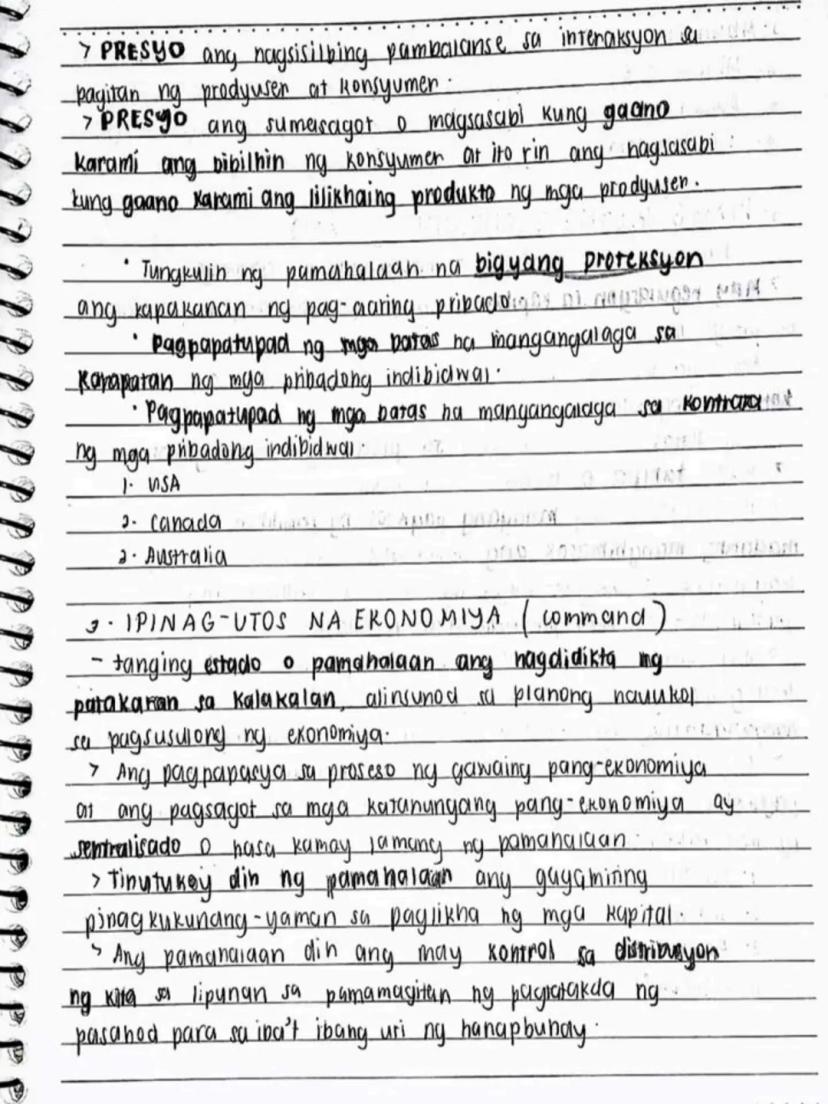 > PRESYO ang nagsisilbing pambalanse sa interaksyon sa
pagitan ng prodyuser at konsyumer.
> PRESYO ang sumasagot o magsasabi kung gaano
karami ang bibilhin ng konsyumer at ito rin ang nagsasabi
kung gaano karami ang lilikhaing produkto ng mga prodyuser.
• Tungkulin ng pamahalaan na bigyang proteksyon
ang kapakanan ng pag-aaring pribado.
• Pagpapatupad ng mga batas na mangangalaga sa
Karapatan ng mga pribadong indibidwal.
• Pagpapatupad ng mga batas na mangangalaga sa kontrata
ng mga pribadong indibidwal.
1. USA
2. Canada
3. Australia
3. IPINAG-UTOS NA EKONOMIYA (command)
- tanging estado o pamahalaan ang nagdidikta ng
patakaran sa kalakalan, alinsunod sa planong nauukol
sa pagsusulong ng ekonomiya.
> Ang pagpapasya sa proseso ng gawaing pang-ekonomiya
at ang pagsagot sa mga katanungang pang-ekonomiya ay
sentralisado o nasa kamay lamang ng pamahalaan.
> Tinutukoy din ng pamahalaan ang gagamiting
pinagkukunang-yaman sa paglikha ng mga kapital.
> Ang pamahalaan din ang may kontrol sa distribusyon
ng kita sa lipunan sa pamamagitan ng pagtatakda ng
pasahod para sa iba't ibang uri ng hanapbuhay.